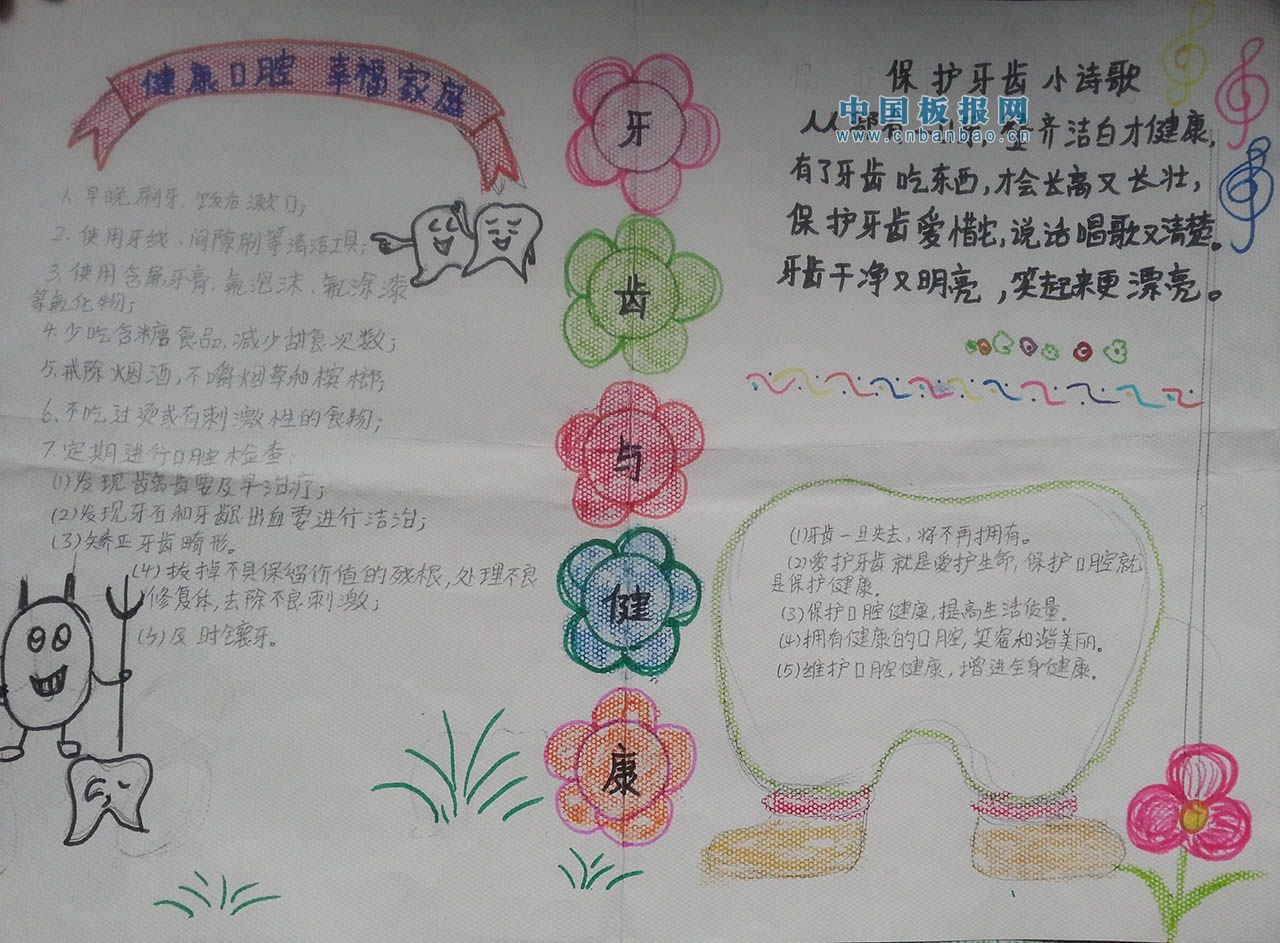 健康口腔 幸福家庭
1、早晚刷牙，饭后漱口；
2、使用牙线、间隙刷等清洁工具；
3、使用含氟牙膏、氟泡沫、氟涂漆
等氟化物；
4、少吃含糖食品，减少甜食次数；
5、戒除烟酒，不嚼烟草和槟榔；
6、不吃过烫或有刺激性的食物；
7、定期进行口腔检查：
(1)发现龋齿要及早治疗；
(2)发现牙石和牙龈出血要进行洁治；
(3)矫正牙齿畸形。
(4)拔掉不具保留价值的残根，处理不良
修复体，去除不良刺激；
(5)及时镶牙。
牙
齿
与
健
康
保护牙齿小诗歌
中国板报网
www.cnbanbao.cn
人人都有 整齐洁白才健康，
有了牙齿吃东西，才会长高又长壮，
保护牙齿爱惜它，说话唱歌又清楚。
牙齿干净又明亮，笑起来更漂亮。
(1)牙齿一旦失去，将不再拥有。
(2)爱护牙齿就是爱护生命，保护口腔就
是保护健康。
(3)保护口腔健康，提高生活质量。
(4)拥有健康的口腔，笑容和谐美丽。
(5)维护口腔健康，增进全身健康。